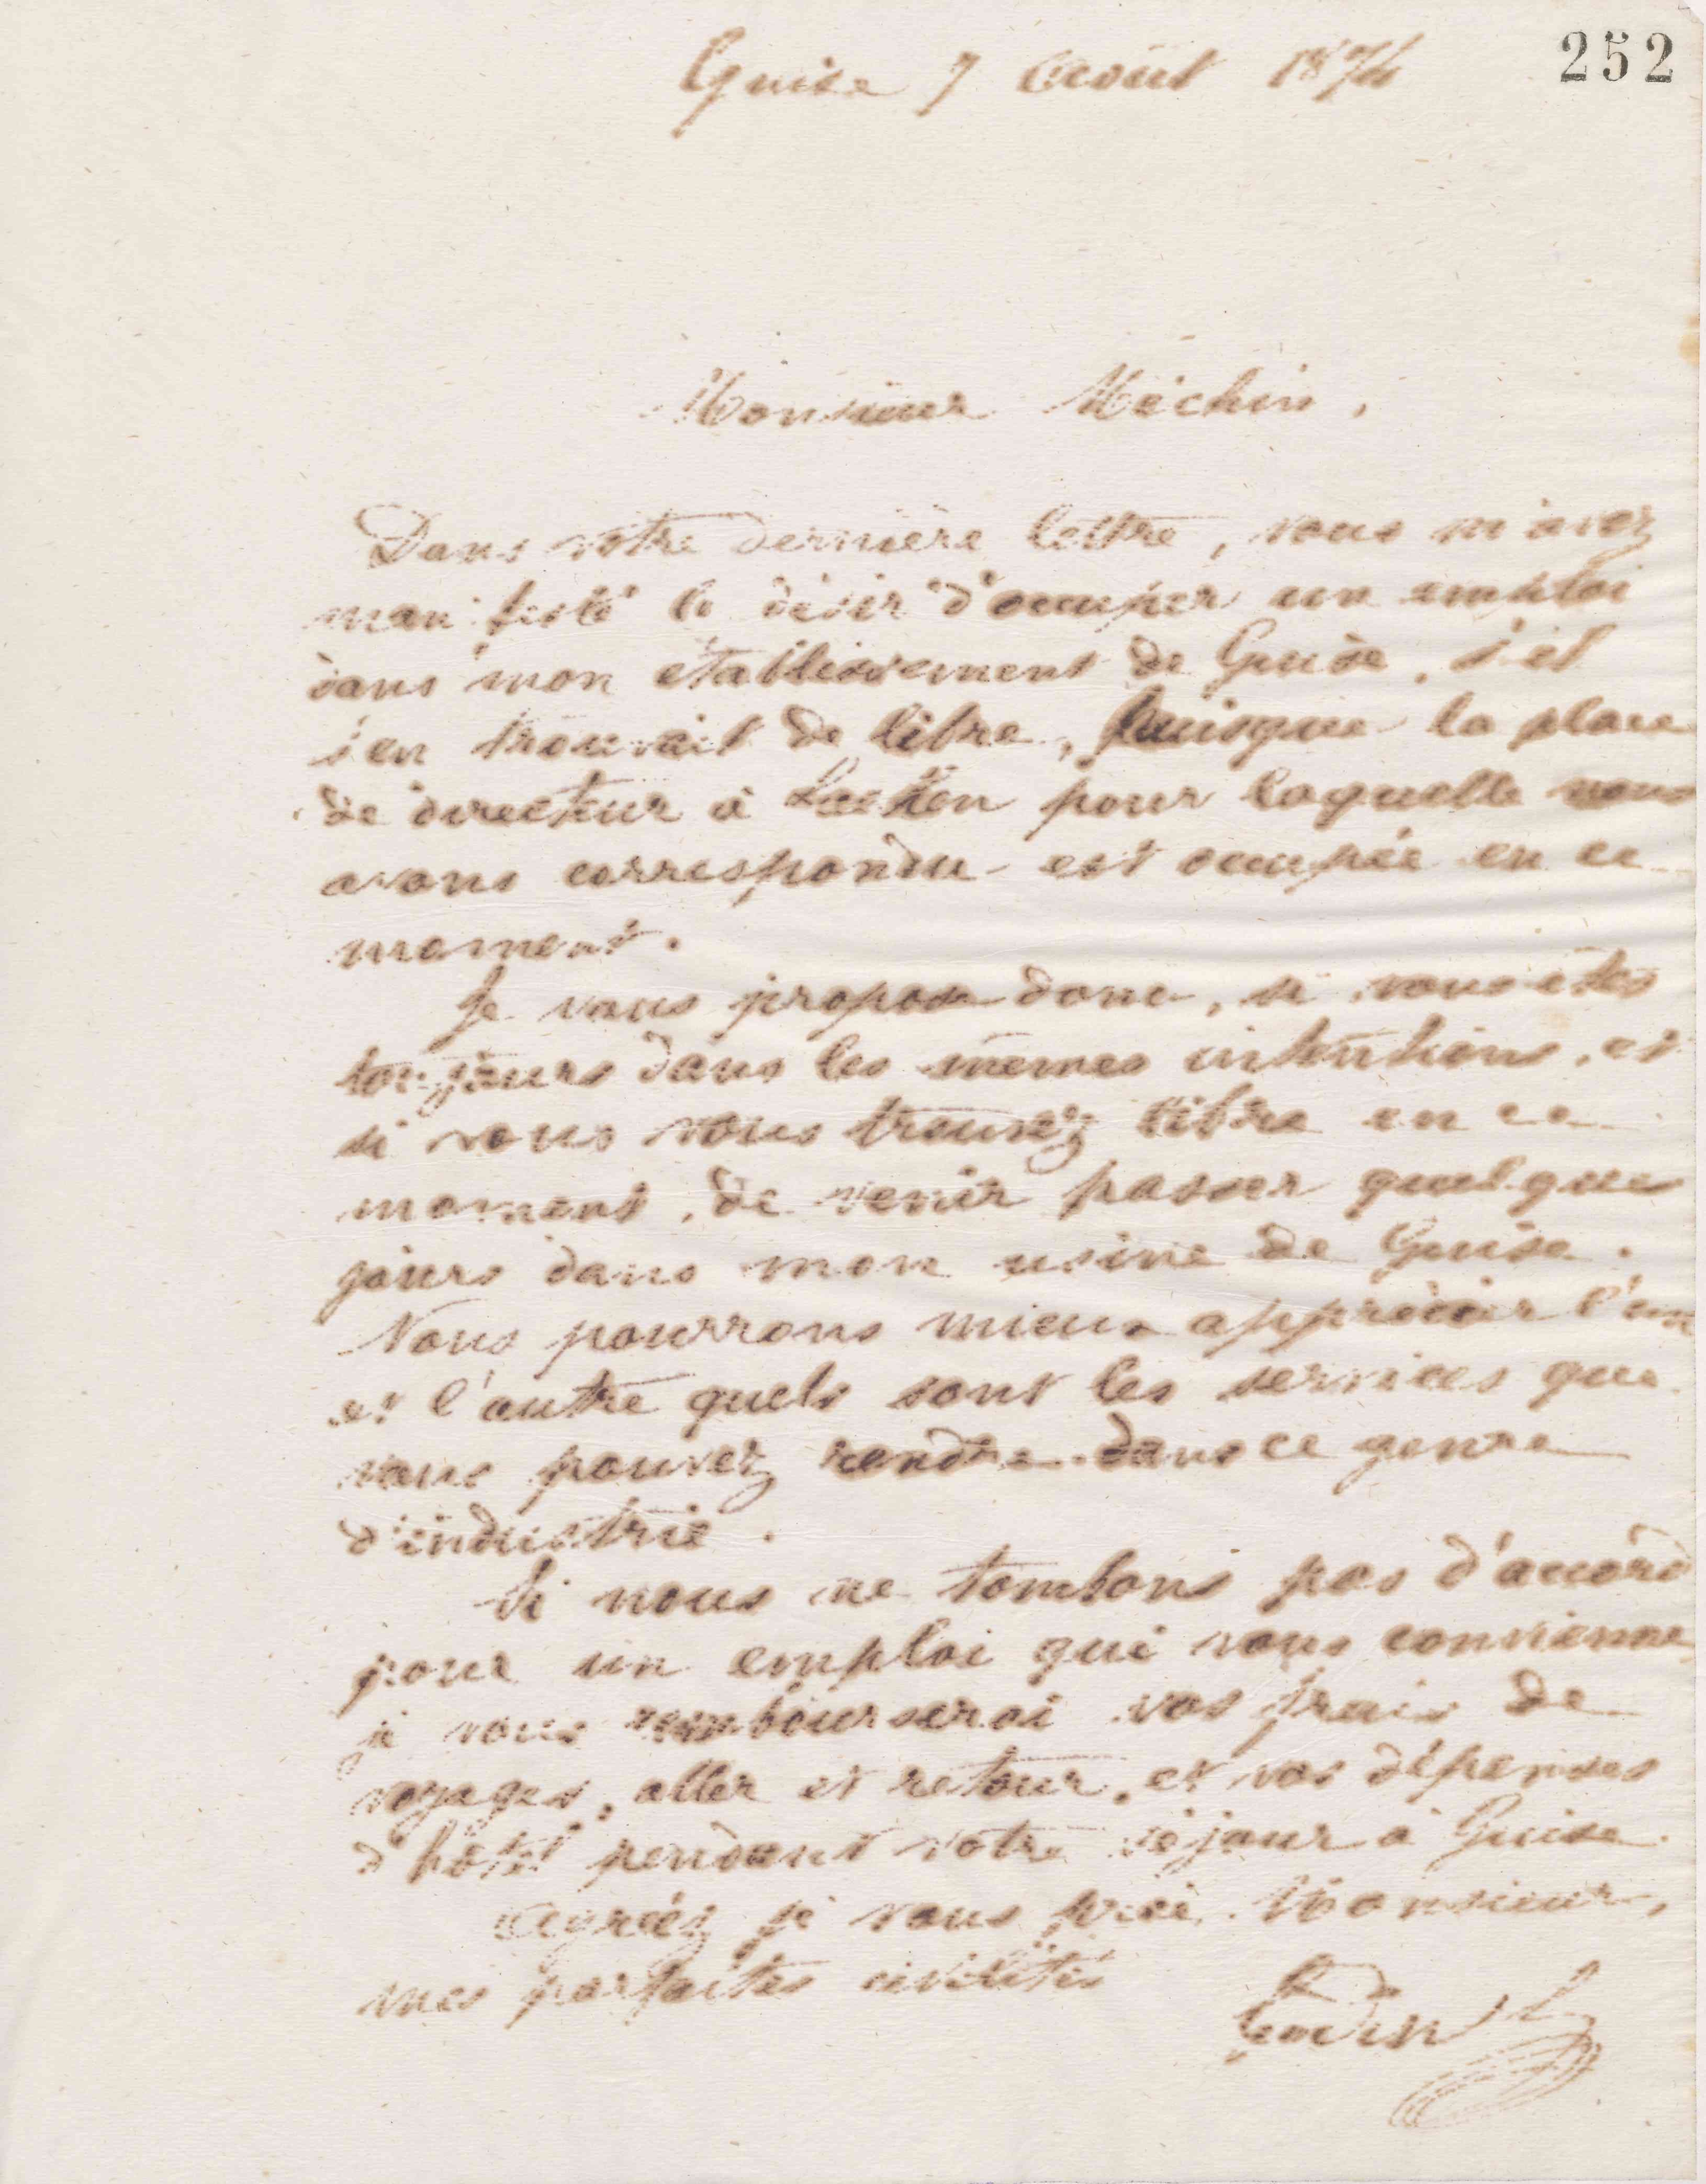 Guise 7 Août 1874
252
Monsieur Méchin,
Dans votre dernière lettre, vous m'avez
manifesté le désir d'occuper un emploi
dans mon établissement de Guise, s'il
s'en trouvait de libre, puisque la place
de directeur à Laeken pour laquelle nous
avons correspondu est occupée en ce
moment.
Je vous propose donc, si vous êtes
toujours dans les mêmes intentions, et
si vous vous trouvez libre en ce
moment, de venir passer quelques
jours dans mon usine de Guise.
Nous pourrons mieux apprécier l'un
et l'autre quels sont les services que
vous pouvez rendre dans ce genre
d'industrie.
Si nous ne tombons pas d'accord
pour un emploi qui vous convienne
je vous rembourserai vos frais de
voyages, aller et retour, et vos dépenses
d'hôtel pendant votre séjour à Guise.
Agréez je vous prie, Monsieur,
mes parfaites civilités
Godin